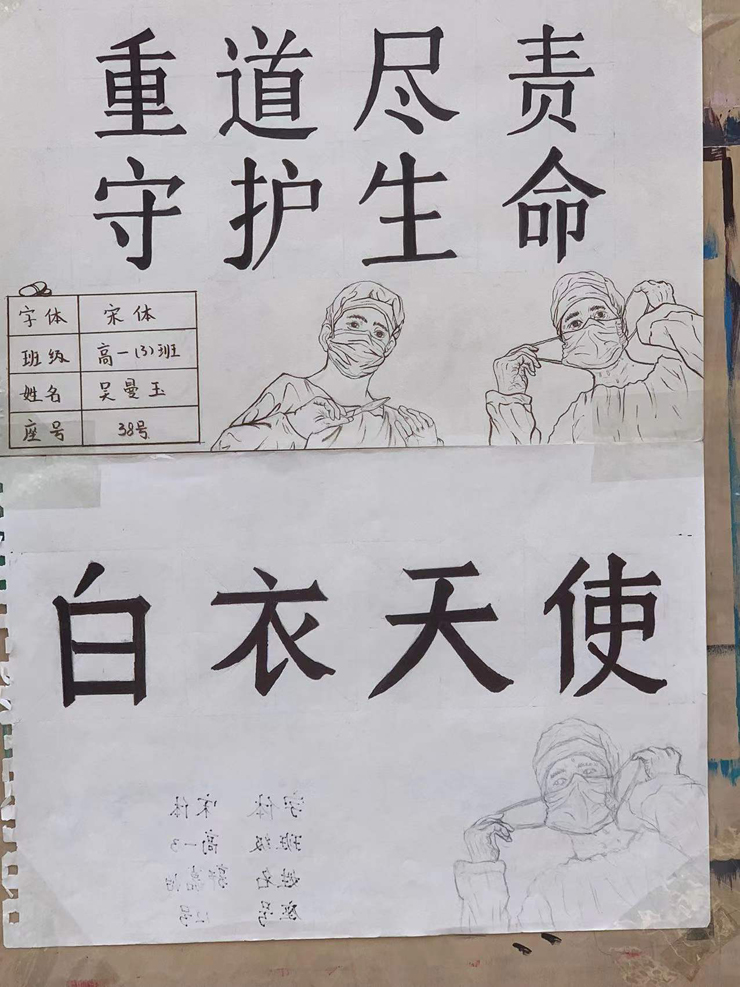 重道尽责
守护生命
字体 宋体
班级 高一(3)班
姓名 吴曼玉
座号 38号
白衣天使
字体 宋体
班级 高一3
姓名
座号 12号